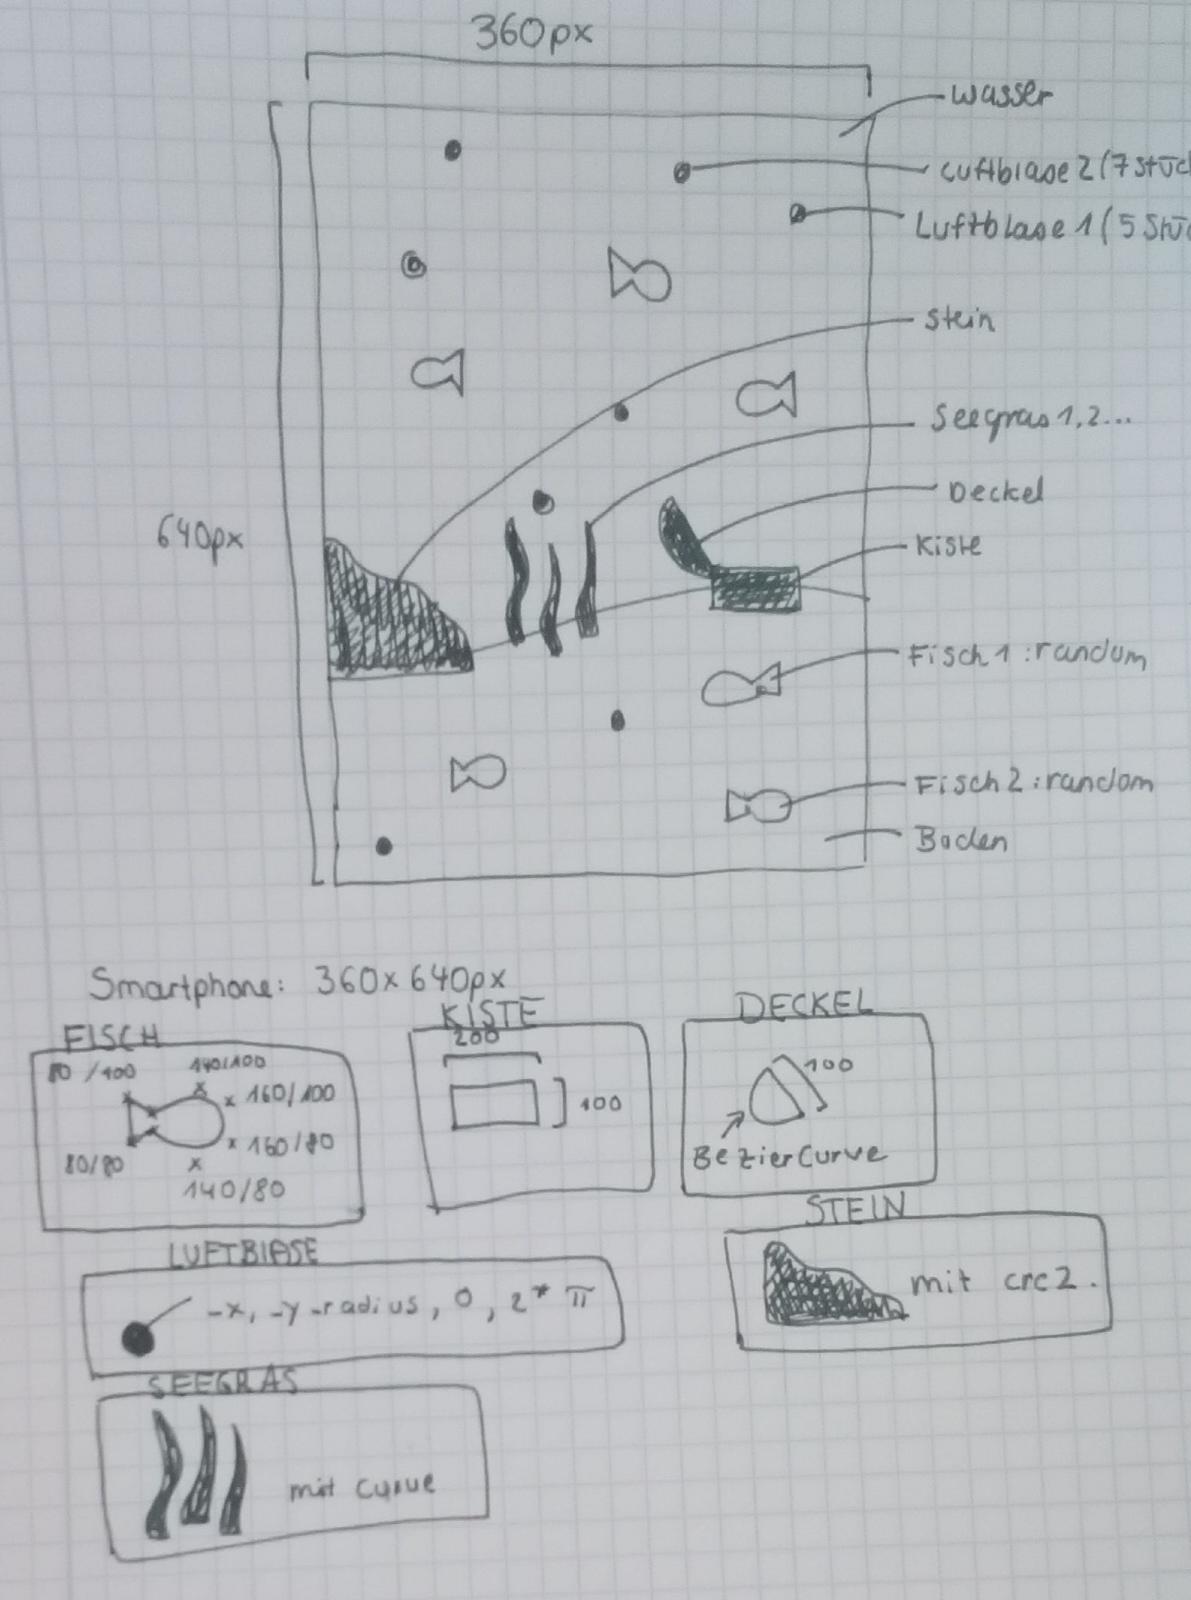 360px
Wasser
Luftblase 2 (7 Stüc
Luftblase 1 (5 Stü
Stein
Seegras 1,2...
Deckel
640px
Kiste
Fisch 1 : random
Fisch 2 : random
Boden
Smartphone: 360x640px
FISCH
80 /100
140/100
160/100
160/80
80/80
140/80
KISTE
200
100
DECKEL
100
BezierCurve
LUFTBlASE
-x, -y -radius, 0, 2* π
STEIN
mit crc2.
SEEGRAS
mit curve